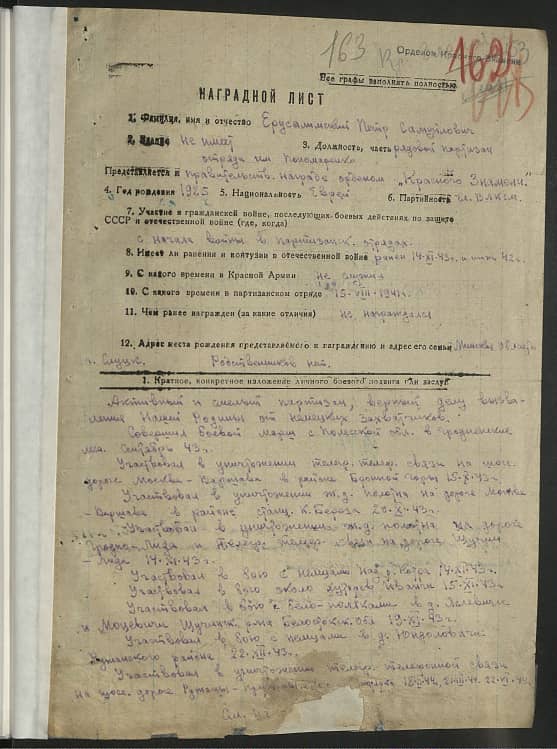 163
Орденом Красного Знамени
162
Все графы заполнять полностью.
НАГРАДНОЙ ЛИСТ
1. Фамилия, имя и отчество Ерусалимский Петр Самуилович
2. Звание Не имеет 3. Должность, часть рядовой партизан
отряда им Пономаренко
Представляется к правительств. награде орденом „Красного Знамени"
4. Год рождения 1925 5. Национальность Еврей 6. Партийность чл. ВЛКСМ.
7. Участие в гражданской войне, последующих боевых действиях по защите
СССР и отечественной войне (где, когда)
с начала войны в партизанск. отрядах.
8. Имеет ли ранения и контузии в отечественной войне ранен 14-XI-43г. и 42г.
9. С какого времени в Красной Армии не служил
10. С какого времени в партизанском отряде 15-VIII-1941г.
11. Чем ранее награжден (за какие отличия) не награждался
12. Адрес места рождения представляемого к награждению и адрес его семьи Минская область
г. Слуцк. Родственников нет.
1. Краткое, конкретное изложение личного боевого подвига или заслуг
Активный и смелый партизан, верный делу
Нашей Родины от немецких захватчиков.
Совершил боевой марш с Полесской обл. в Гродненские
леса. Сентябрь 43г.
Участвовал в уничтожении телегр. телеф. связи на шос.
дороге Москва-Варшава в районе Бронной горы 15-X-43г.
Участвовал в уничтожении ж.д. полотна на дороге Москва
-Варшава в районе станц. К. Береза 20-X-43г.
Участвовал в уничтожении ж.д. полотна на дороге
Гродно-Лида и телегр. телеф. связи на дороге Щучин
-Лида 14-XI-43г.
Участвовал в бою с немцами на
Участвовал в бою около хуторов
Участвовал в бою с бело-поляками в д.
и Моцевичи Щучинск. р-на Белостокск. обл 19-XI-43г.
Участвовал в бою с немцами в д. Юндоловичи
Ружанского района 22-XII-43г.
Участвовал в уничтожении телегр. телефонной связи
на шос. дороге Ружаны-
См. на